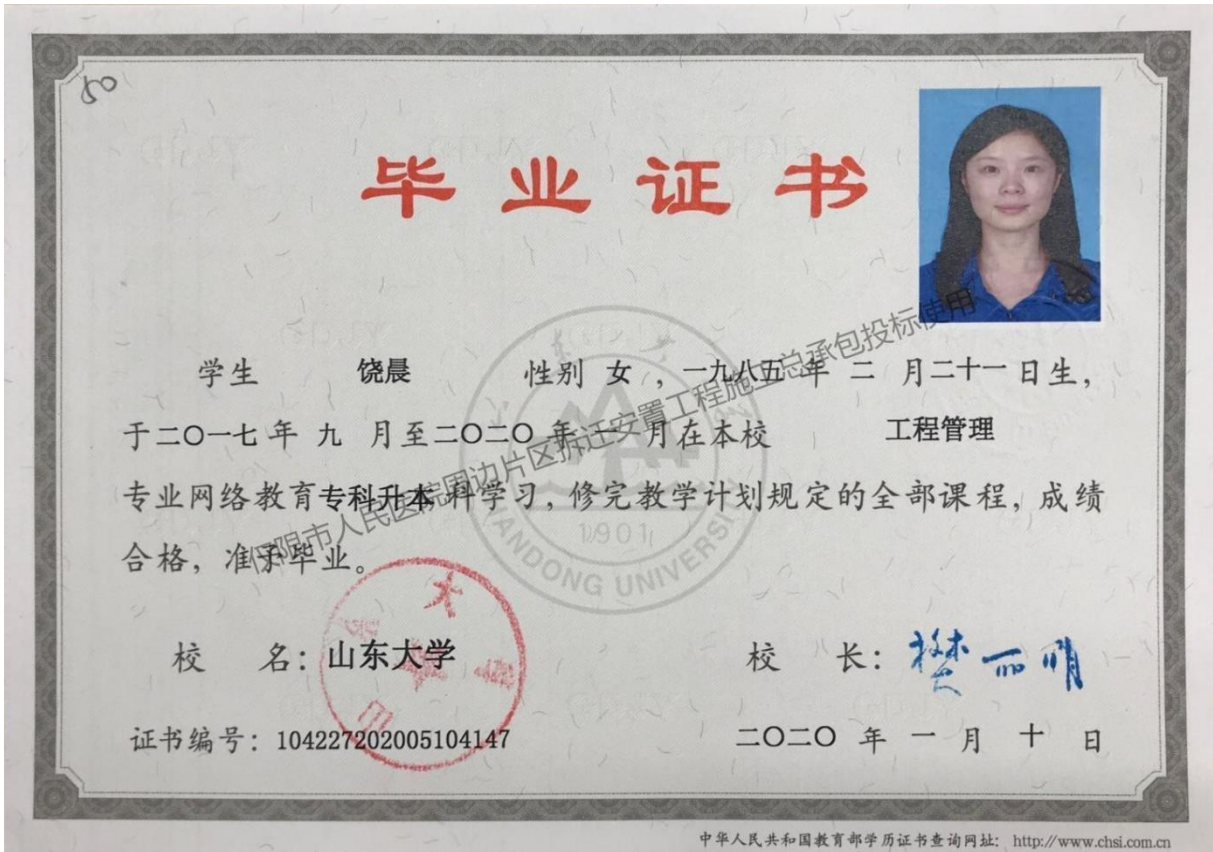 50
毕业证书
学生 饶晨 性别 女 ，一九八五 年 二 月二十一日生，
于二〇一七 年 九 月至二〇二〇 年 一 月在本校 工程管理
专业网络教育专科升本科学习，修完教学计划规定的全部课程，成绩
合格，准予毕业。
市人民医院周边片区拆迁安置工程施工总承包投标使用
1901
SHANDONG UNIVERSITY
校 名：山东大学 校 长：樊丽明
证书编号：104227202005104147 二〇二〇 年 一 月 十 日
中华人民共和国教育部学历证书查询网址：http://www.chsi.com.cn